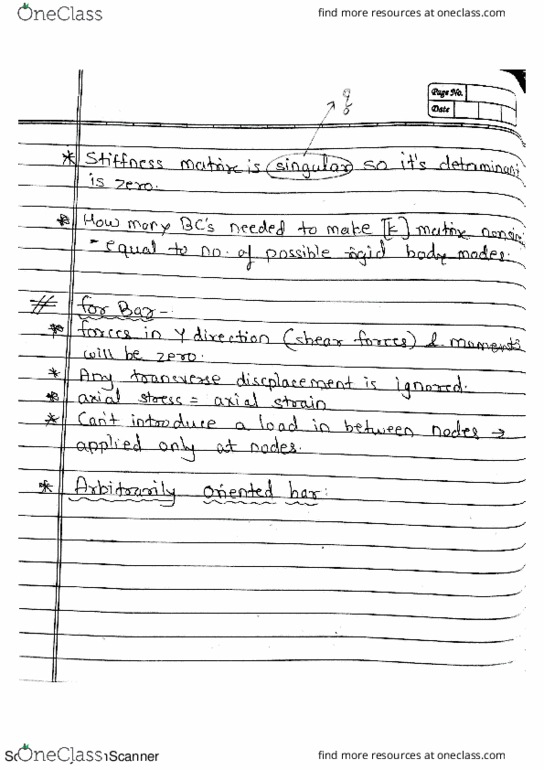 OneClass
find more resources at oneclass.com
Page No.
Date
* Stiffness matrix is singular so it's determinant
is zero.
* How many BC's needed to make [k] matrix
- equal to no. of possible rigid body modes.
# for Bar -
* forces in Y direction (shear forces) & moments
will be zero.
* Any tranverse discplacement is ignored.
* axial stress = axial strain
* Can't introduce a load in between nodes →
applied only at nodes.
* Arbitrarily oriented bar:
OneClass
Scanner
find more resources at oneclass.com